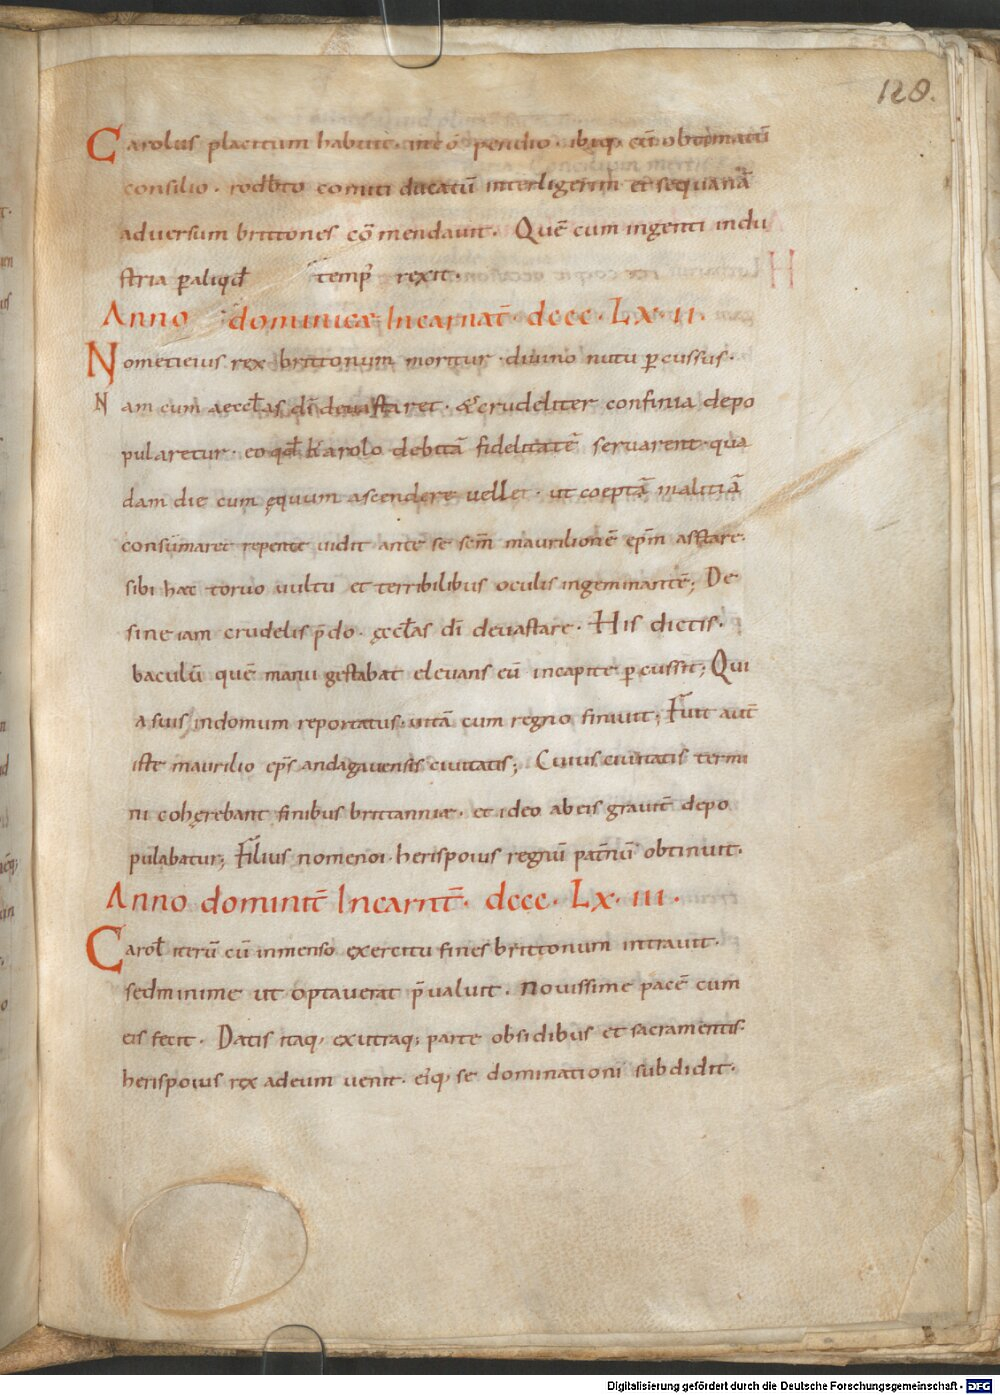 128.
Carolus placitum habuit· in cō pendio· ibiq; cū obtimatū
consilio· rodb̄to comiti ducatū inter ligerim et sequanā
adversum brittones cō mendauit· Quē cum ingenti indu
stria p aliqd̄ temp̄ rexit·
Anno dominicæ Incarnat̄· dccc· Lx· ii·
Nometicius rex brittonum moritur· diuino nutu pcussus·
Nam cum aeccl̄as dī deuastaret· & crudeliter confinia depo
pularetur· eo qd̄ karolo debitā fidelitatē servarent· qua
dam die cum ęquum ascendere uellet· ut coeptā malitiā
consūmaret repente uidit ante se sc̄m maurilionē ep̄m asstare·
sibi haec toruo uultu et terribilibus oculis ingeminantē; De
sine iam crudelis p̄do· ęccl̄as dī deuastare· His dictis·
baculū quē manu gestabat elevans eū in capite pcussit; Qui
a suis in domum reportatus· uitā cum regno finiuit; Fuit aut̄
iste maurilio ep̄s andagauensis ciuitatis; Cuius ciuitatis termi
ni cohęrebant finibus brittanniæ· et ideo ab eis grauit̄ depo
pulabatur; Filius nomenoi· herispoius regnū pat̄nū obtinuit·
Anno dominic̄ Incarnt̄· dccc· Lx· iii·
Carol̄ iterū cū inmenso exercitu fines brittonum intrauit·
sed minime ut optauerat p̄ualuit· Novissime pacē cum
eis fecit· Datis itaq; ex utraq; parte obsidibus et sacramentis·
herispoius rex ad eum venit· eiq; se dominationi subdidit·
Digitalisierung gefördert durch die Deutsche Forschungsgemeinschaft - DFG